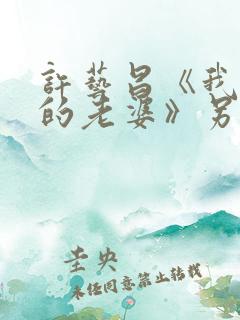 許藝昌《我
的老婆》另
圭央
未任同意禁止转载